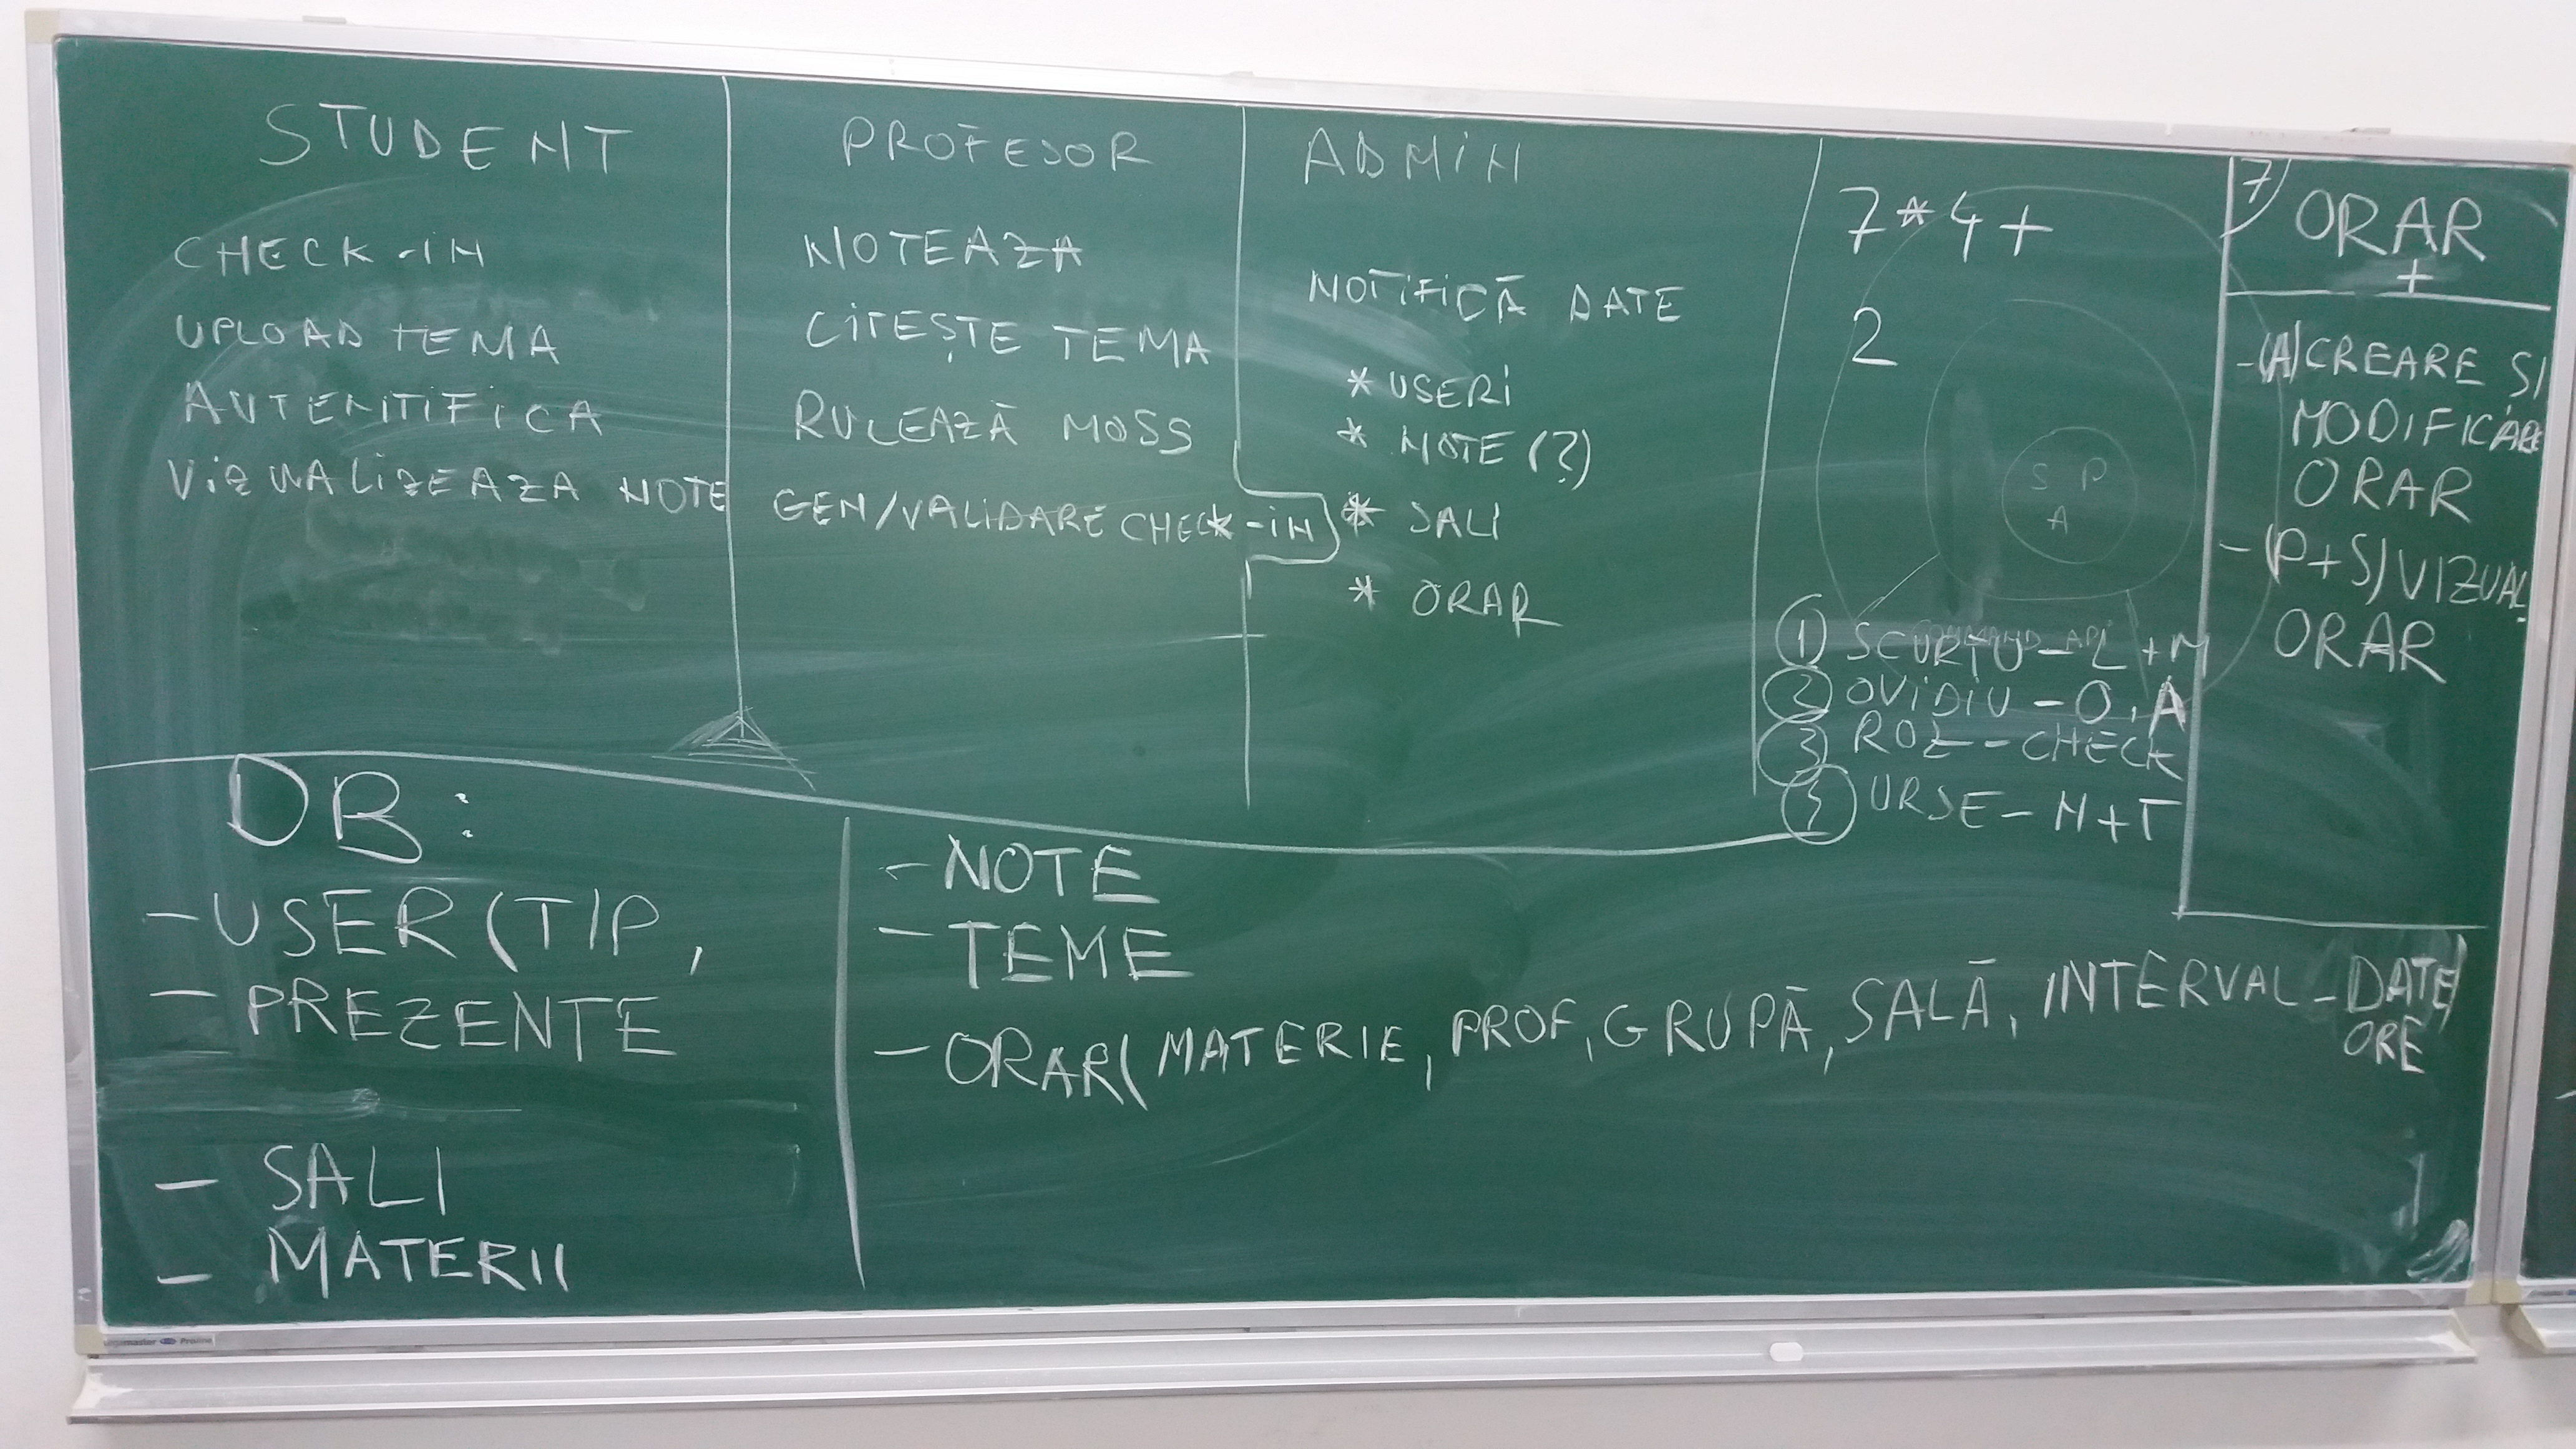 STUDENT
CHECK-IN
UPLOAD TEMA
AUTENTIFICA
VIZUALIZEAZA NOTE
PROFESOR
NOTEAZA
CITEȘTE TEMA
RULEAZĂ MOSS
GEN/VALIDARE CHECK-IN
ADMIN
NOTIFICĂ DATE
* USERI
* NOTE (?)
* SALI
* ORAR
7*4+
2
S P
A
COMMAND API
1 SCURTU - L+M
2 OVIDIU - O, A
3 ROZ - CHECK
URSE - N+T
7) ORAR
+
-(A) CREARE SI
MODIFICARE
ORAR
-(P+S) VIZUAL.
ORAR
DB:
- USER (TIP,
- PREZENTE
- SALI
- MATERII
- NOTE
- TEME
- ORAR( MATERIE, PROF, GRUPĂ, SALĂ, INTERVAL - DATE)
ORE